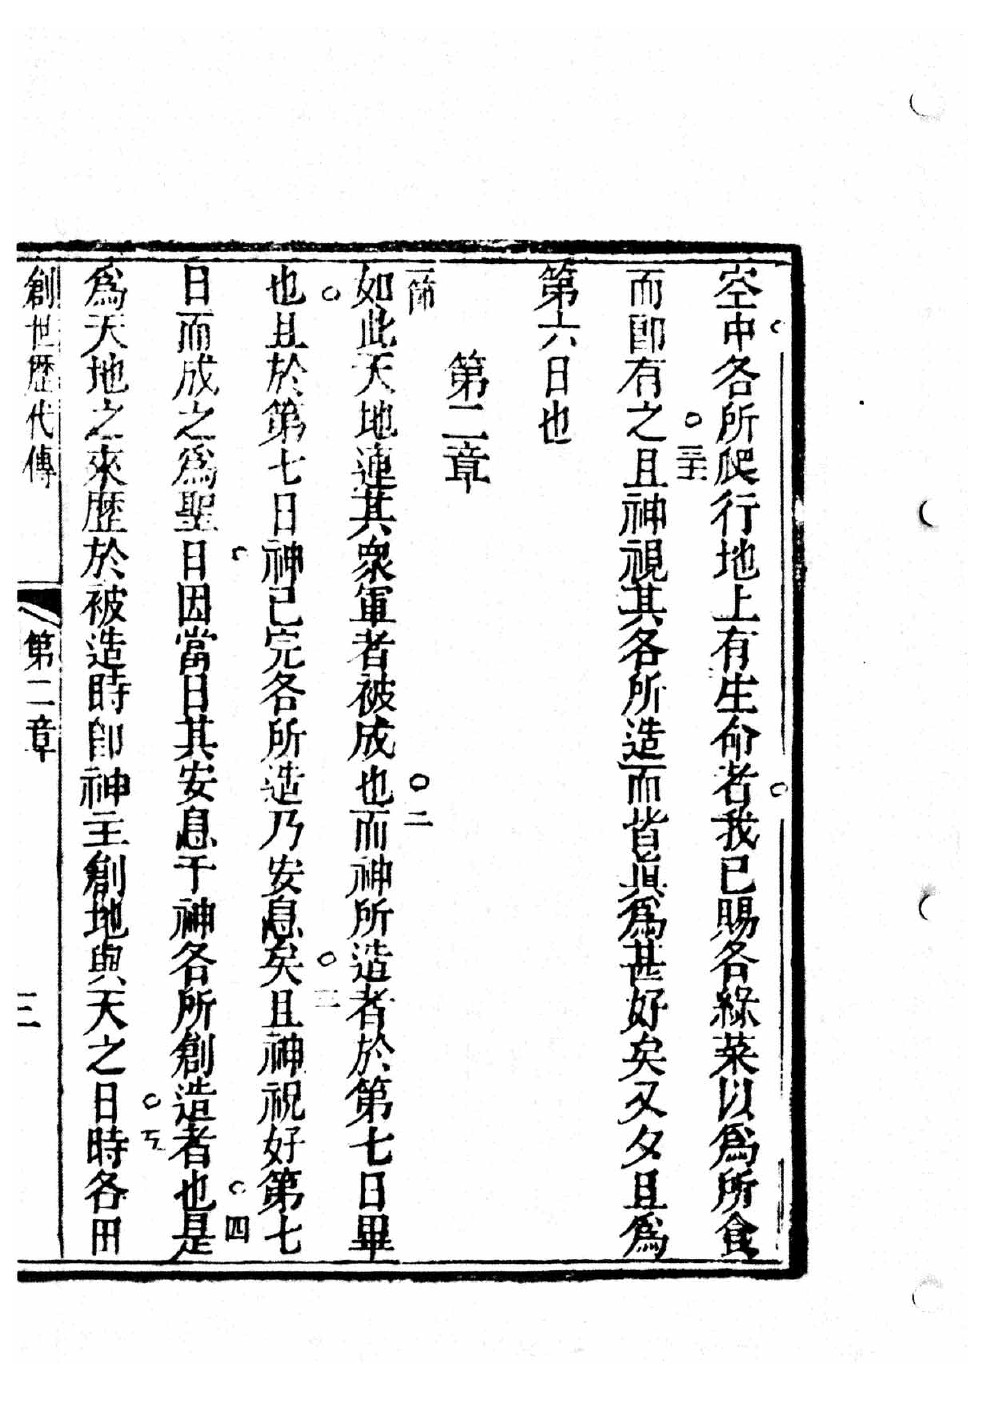 空中各所爬行地上有生命者我已賜各綠菜以爲所食
而卽有之且神視其各所造而皆眞爲甚好矣又夕且爲
第六日也
第二章
一節
如此天地連其衆軍者被成也而神所造者於第七日畢
二
也且於第七日神已完各所造乃安息矣且神祝好第七
三
日而成之爲聖日因當日其安息于神各所創造者也是
四
爲天地之來歷於被造時卽神主創地與天之日時各田
五
創世歷代傳
第二章
三